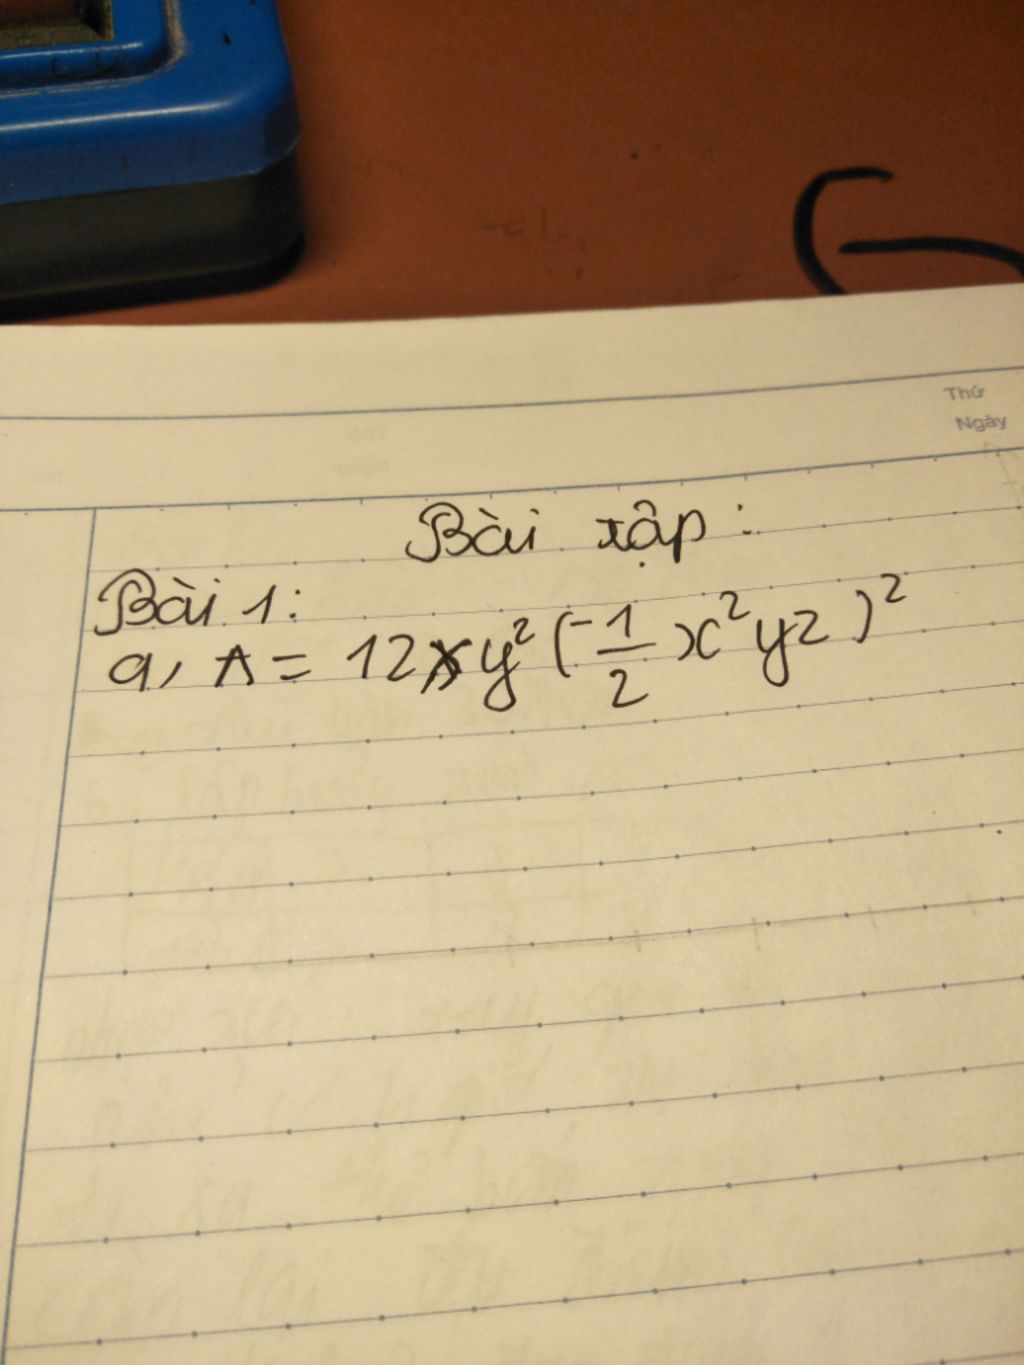 Thứ
Ngày
Bài tập:
Bài 1:
a, A = 12xy²(-1/2 x²yz)²